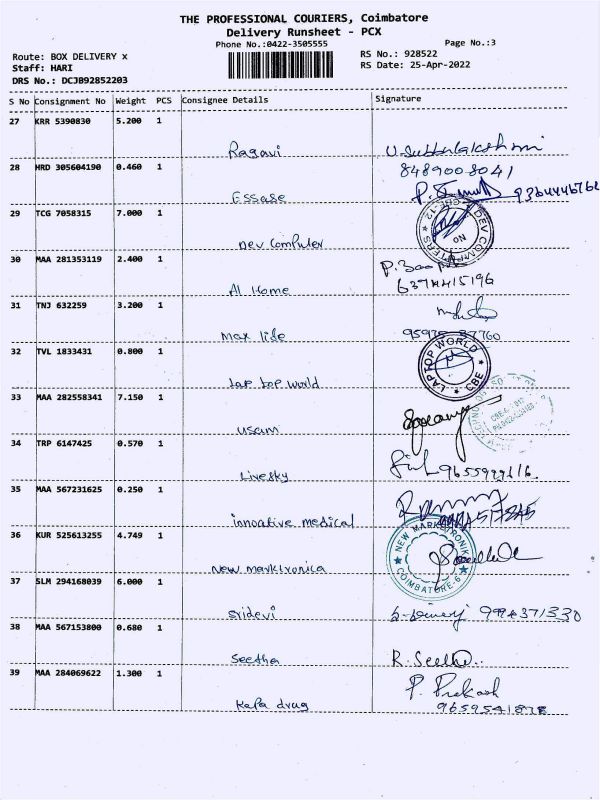 THE PROFESSIONAL COURIERS, Coimbatore
Delivery Runsheet - PCX
Phone No.:0422-3505555
Page No.:3
Route: BOX DELIVERY x
RS No.: 928522
Staff: HARI
RS Date: 25-Apr-2022
DRS No.: DCJB92852203
S No Consignment No Weight PCS Consignee Details Signature
27 KRR 5390830 5.200 1
Ragavi
8489008041
28 HRD 305604190 0.460 1
Essase
29 TCG 7058315 7.000 1
Dev Computer
DEV COMPUTERS CBE-12
30 MAA 281353119 2.400 1
At Home
6374415196
31 TNJ 632259 3.200 1
Max life
32 TVL 1833431 0.800 1
Lap top world
LAPTOP WORLD CBE
33 MAA 282558341 7.150 1
usam
34 TRP 6147425 0.570 1
Livesky
35 MAA 567231625 0.250 1
innoative medical
36 KUR 525613255 4.749 1
New marktronica
NEW MARKTRONIK
COIMBATORE-6
37 SLM 294168039 6.000 1
sridevi
9994371330
38 MAA 567153800 0.680 1
Seetha
R. Seetha.
39 MAA 284069622 1.300 1
Kapa drug
P. Prakash
9659541878